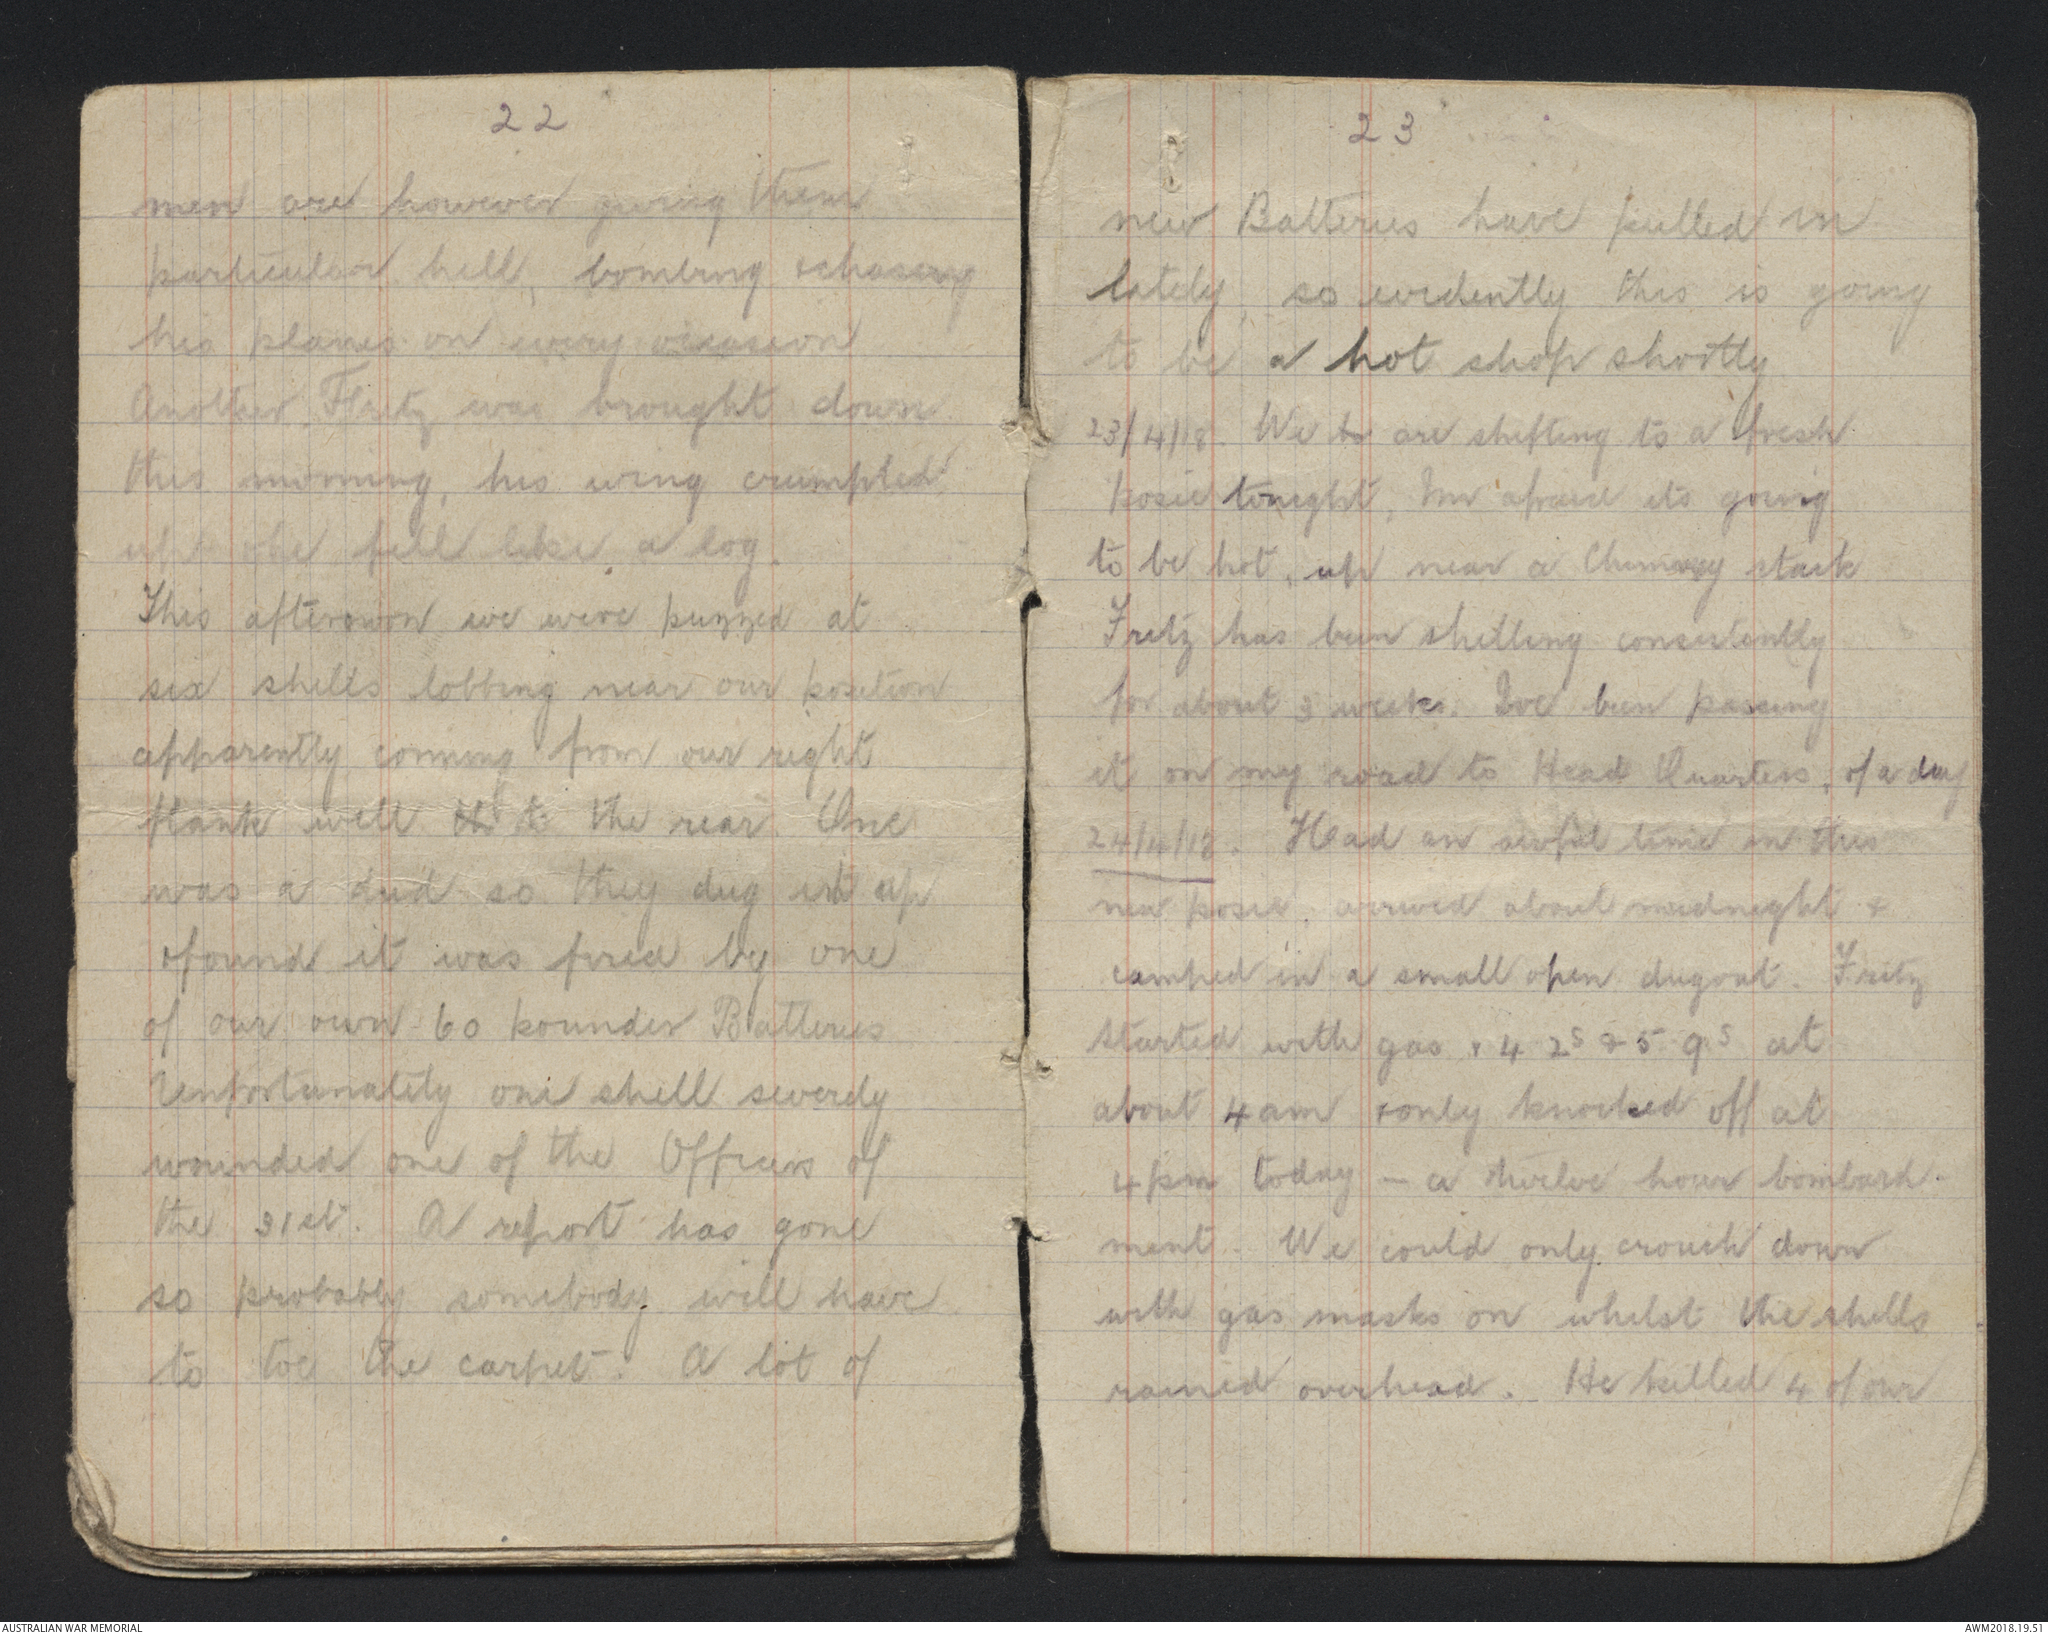 22
men are however giving them
particular hell, bombing & chasing
his planes on every occasion
Another Fritz was brought down
this morning, his wing crumpled
up & he fell like a log.
This afternoon we were puzzled at
six shells lobbing near our position
apparently coming from our right
flank well to the rear. One
was a dud so they dug it up
& found it was fired by one
of our own 60 pounder Batteries
Unfortunately one shell severely
wounded one of the Officers of
the 31st. A report has gone
so probably somebody will have
to toe the carpet. A lot of
23
new Batteries have pulled in
lately, so evidently this is going
to be a hot shop shortly
23/4/18. We are shifting to a fresh
posie tonight, Im afraid its going
to be hot, up near a Chimney stack
Fritz has been shelling consistently
for about 3 weeks. Ive been passing
it on my road to Head Quarters, of a day
24/4/18. Had an awful time in this
new posie, arrived about midnight &
camped in a small open dugout. Fritz
started with gas & 4 2s & 5 9s at
about 4 am & only knocked off at
4 pm today - a twelve hour bombard-
ment. We could only crouch down
with gas masks on whilst the shells
rained overhead. He killed 4 of our
AUSTRALIAN WAR MEMORIAL
AWM2018.19.51